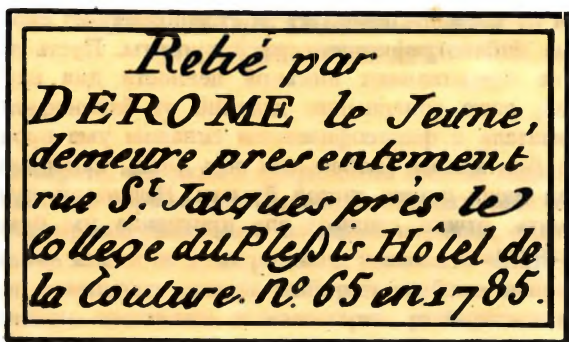 Relié par
DEROME le Jeune,
demeure presentement
rue S.t Jacques près le
College du Pleßis Hôtel de
la Couture. N.o 65 en 1785.